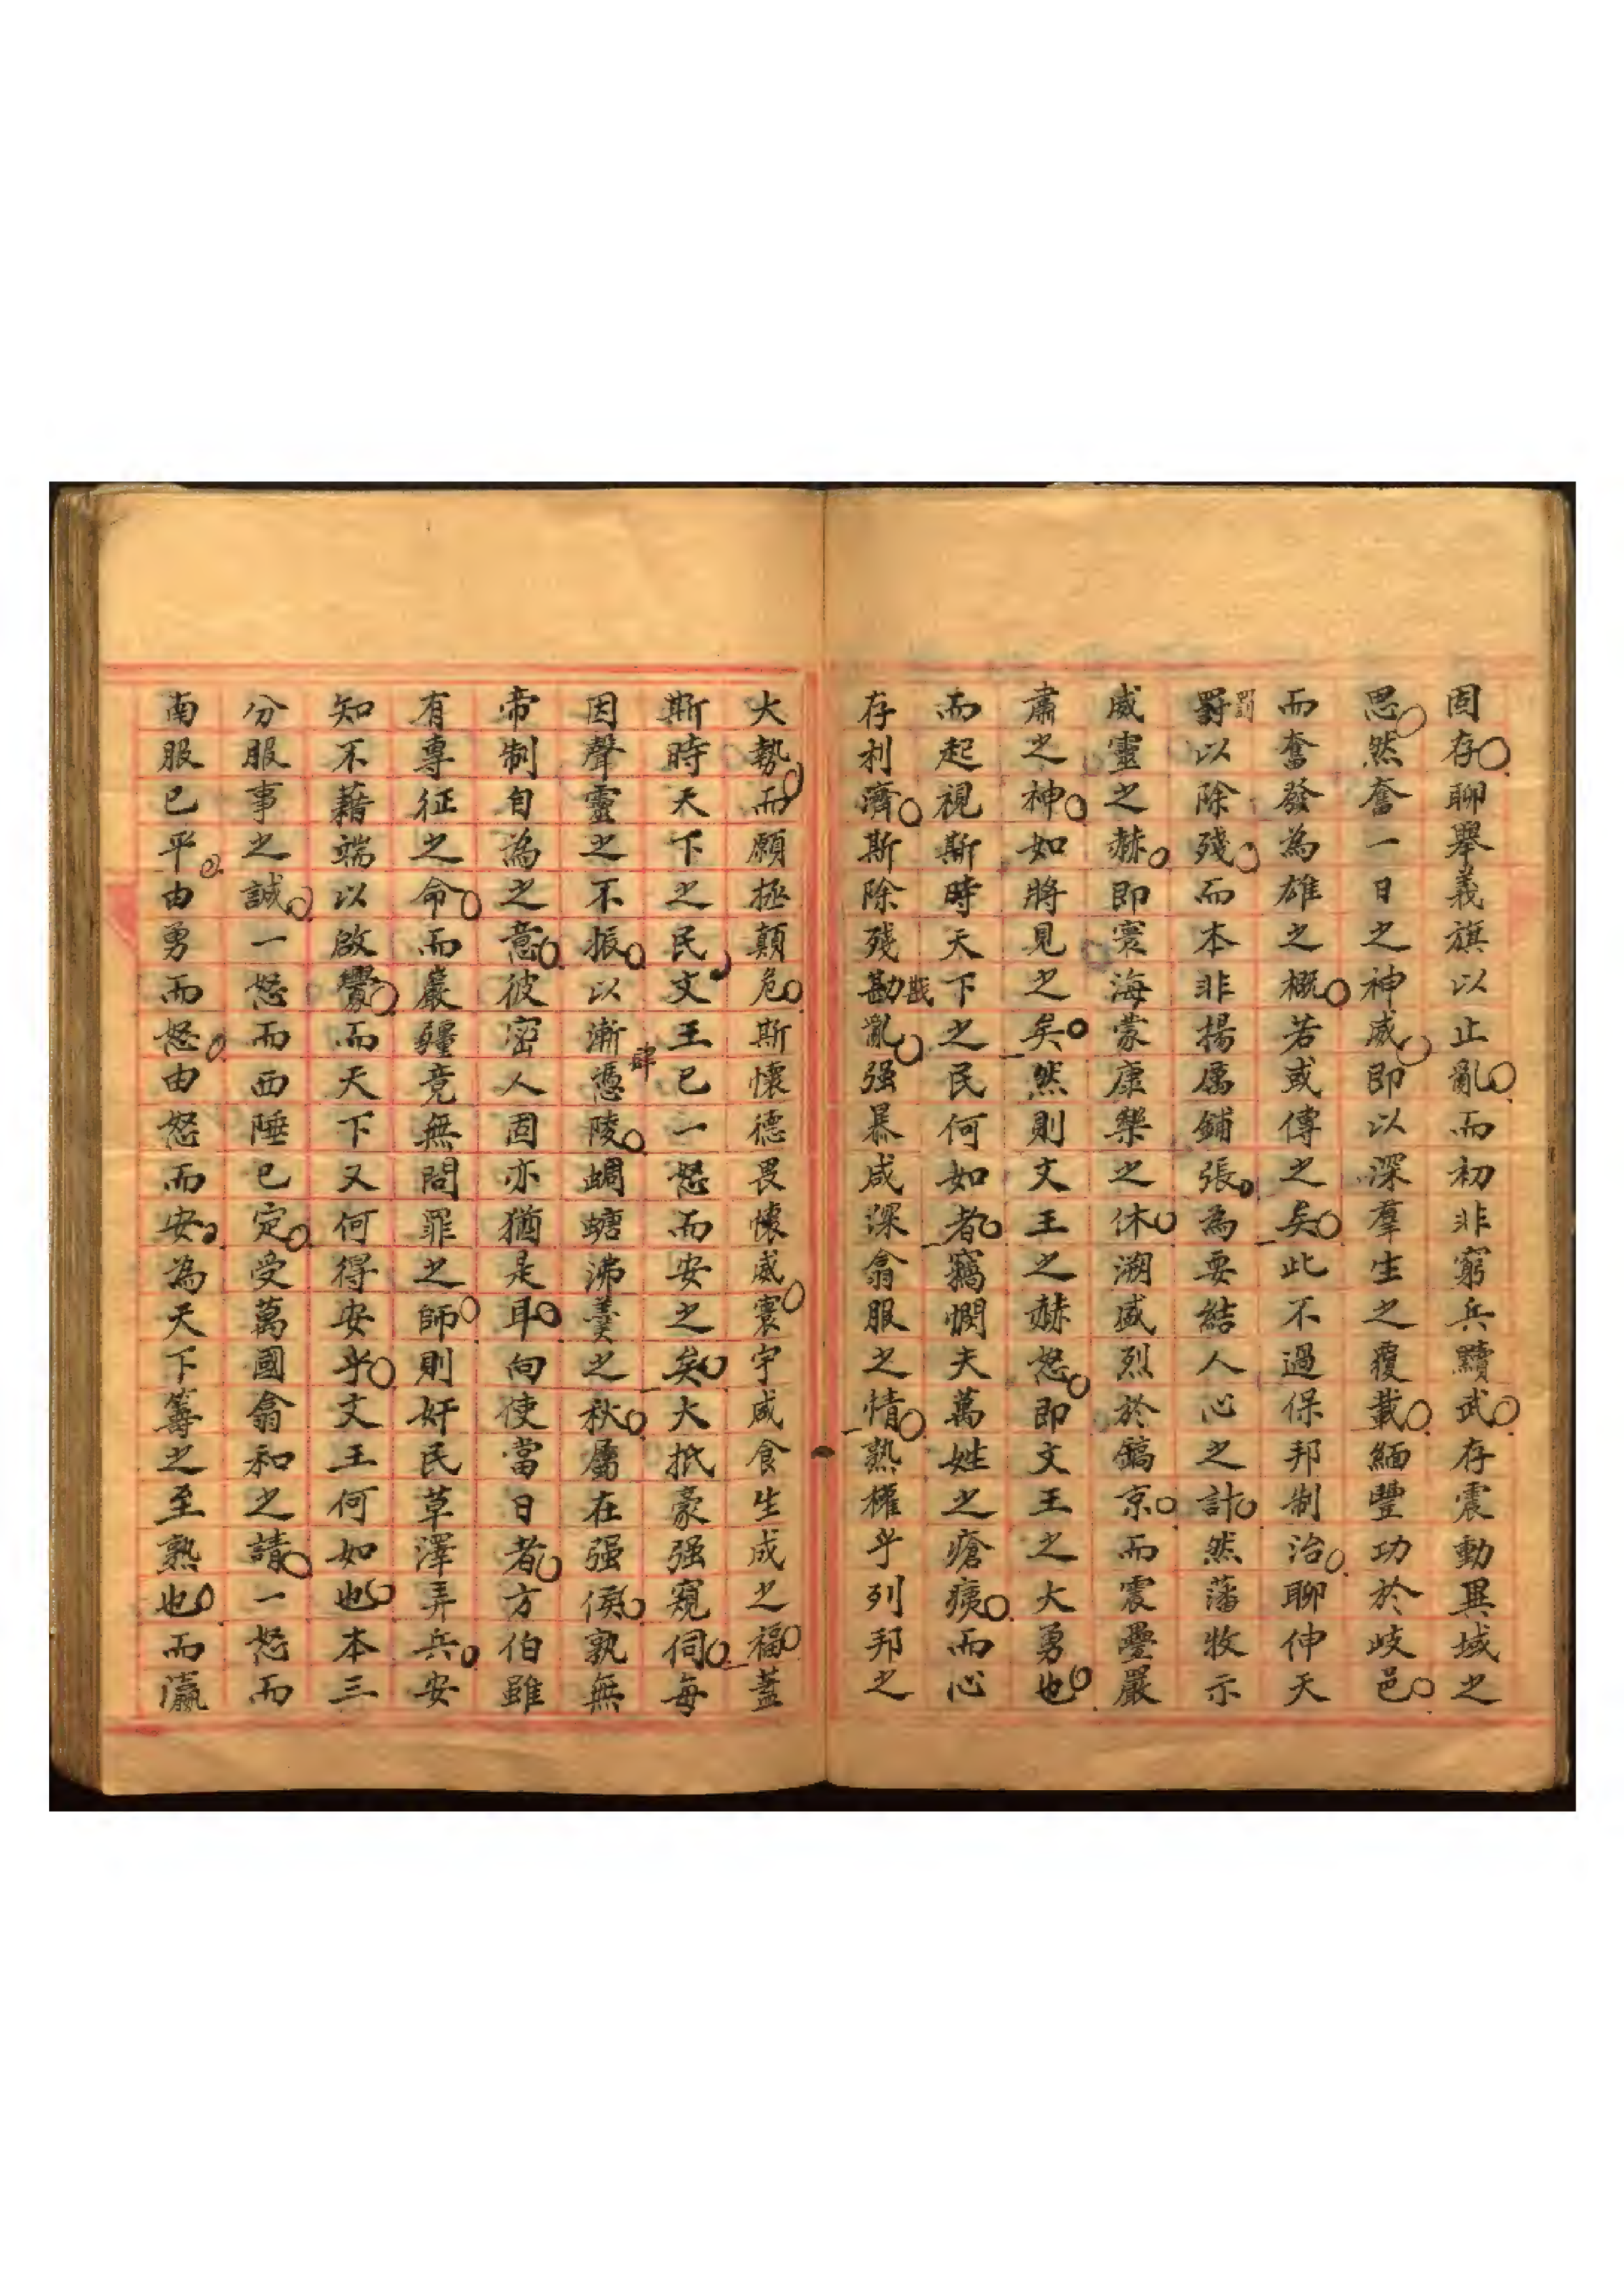 固存聊舉義旗以止亂而初非窮兵黷武存震動異域之
思然奮一日之神威即以深羣生之覆載緬豐功於岐邑
而奮發為雄之概若或傳之矣此不過保邦制治聊伸天
罰以除殘而本非揚厲鋪張為要結人心之計然藩牧示
威靈之赫即寰海蒙康樂之休溯盛烈於鎬京而震疊嚴
肅之神如將見之矣然則文王之赫怒即文王之大勇也
而起視斯時天下之民何如者竊憫夫萬姓之瘡痍而心
存利濟斯除殘勘亂强暴咸深翕服之情熟權乎列邦之
大勢而願拯顛危斯懷德畏懷威寰宇咸食生成之福蓋
斯時天下之民文王已一怒而安之矣大抵豪强窺伺每
因聲靈之不振以漸憑陵蜩螗沸羹之秋屬在强侯孰無
帝制自為之意彼密人固亦猶是耳向使當日者方伯雖
有專征之命而嚴疆竟無問罪之師則奸民草澤弄兵安
知不藉端以啟釁而天下又何得安乎文王何如也本三
分服事之誠一怒而西陲已定受萬國翕和之請一怒而
南服已平由勇而怒由怒而安為天下籌之至熟也而瀛